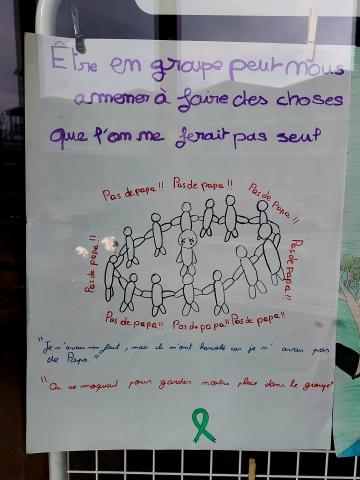 Être en groupe peut nous
amener à faire des choses
que l'on ne ferait pas seul
Pas de papa !! Pas de papa !! Pas de papa !!
Pas de papa !! Pas de papa !!
Pas de papa !! Pas de papa !! Pas de papa !!
"Je n'avais rien fait, mais ils m'ont harcelé car je n'avais pas
de Papa."
"On se moquait pour garder notre place dans le groupe"